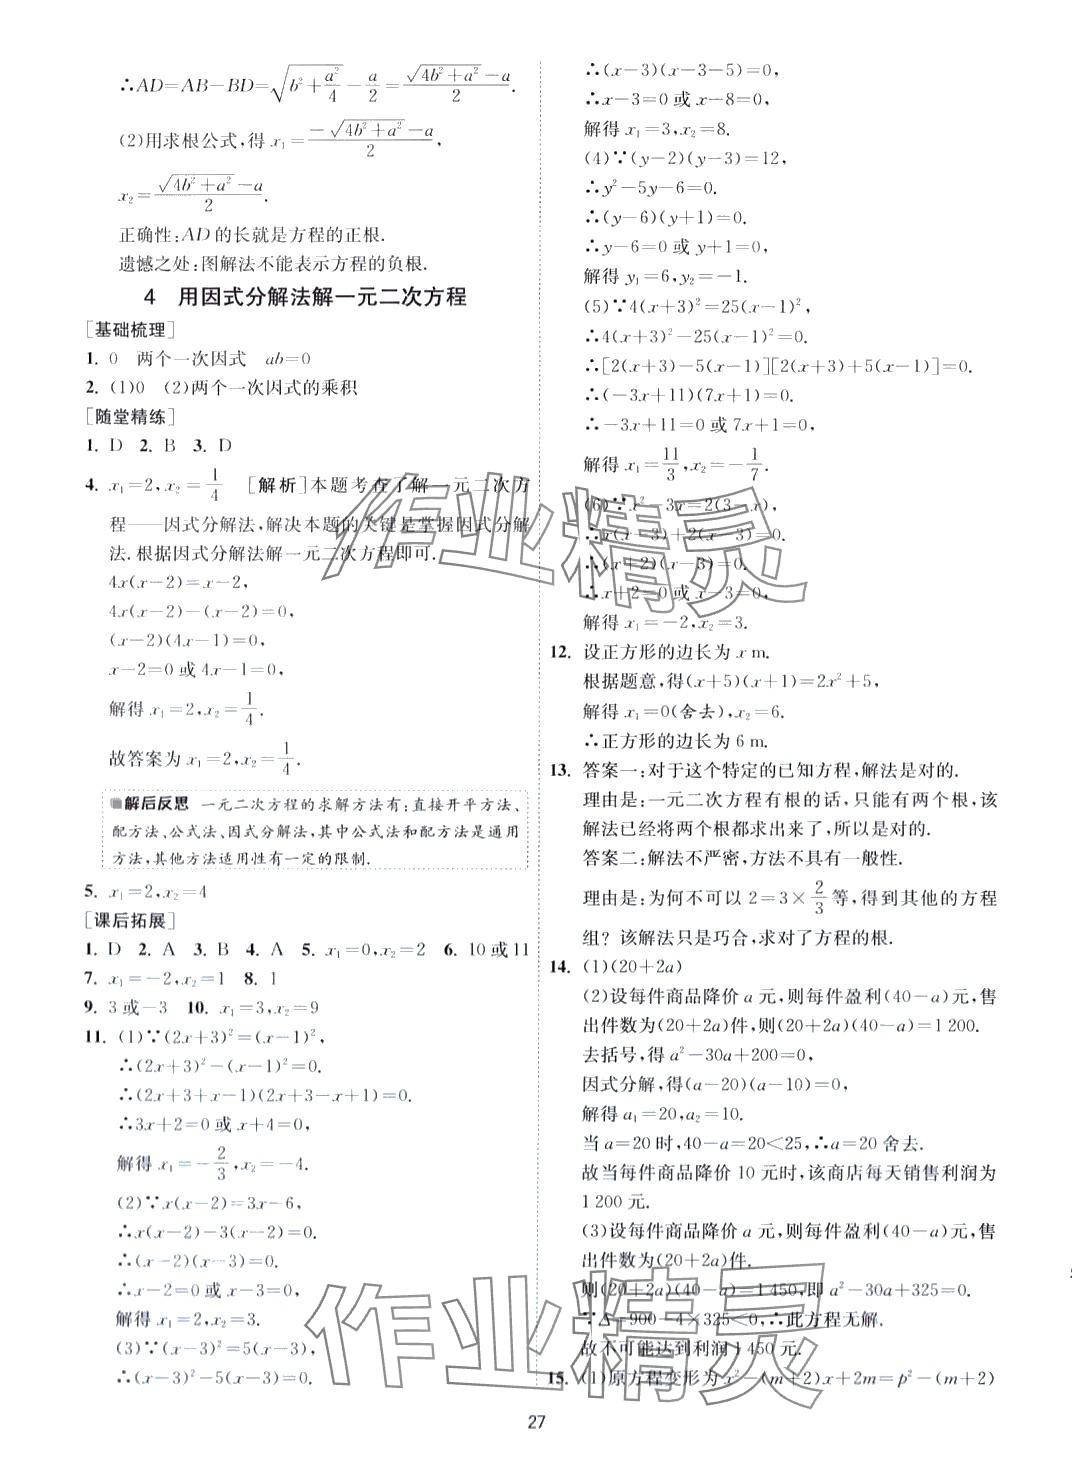 ∴AD=AB-BD=√(b²+a²/4)-a/2=(√(4b²+a²)-a)/2.
(2)用求根公式,得 x₁=(-√(4b²+a²)-a)/2,
x₂=(√(4b²+a²)-a)/2.
正确性:AD 的长就是方程的正根.
遗憾之处:图解法不能表示方程的负根.
4 用因式分解法解一元二次方程
[基础梳理]
1. 0 两个一次因式 ab=0
2. (1)0 (2)两个一次因式的乘积
[随堂精练]
1. D 2. B 3. D
4. x₁=2,x₂=1/4 [解析]本题考查了解一元二次方
程——因式分解法,解决本题的关键是掌握因式分解
法.根据因式分解法解一元二次方程即可.
4x(x-2)=x-2,
4x(x-2)-(x-2)=0,
(x-2)(4x-1)=0,
x-2=0 或 4x-1=0,
解得 x₁=2,x₂=1/4.
故答案为 x₁=2,x₂=1/4.
解后反思 一元二次方程的求解方法有:直接开平方法、
配方法、公式法、因式分解法,其中公式法和配方法是通用
方法,其他方法适用性有一定的限制.
5. x₁=2,x₂=4
[课后拓展]
1. D 2. A 3. B 4. A 5. x₁=0,x₂=2 6. 10 或 11
7. x₁=-2,x₂=1 8. 1
9. 3 或-3 10. x₁=3,x₂=9
11. (1)∵(2x+3)²=(x-1)²,
∴(2x+3)²-(x-1)²=0.
∴(2x+3+x-1)(2x+3-x+1)=0.
∴3x+2=0 或 x+4=0,
解得 x₁=-2/3,x₂=-4.
(2)∵x(x-2)=3x-6,
∴x(x-2)-3(x-2)=0.
∴(x-2)(x-3)=0.
∴x-2=0 或 x-3=0,
解得 x₁=2,x₂=3.
(3)∵(x-3)²=5(x-3),
∴(x-3)²-5(x-3)=0.
∴(x-3)(x-3-5)=0,
∴x-3=0 或 x-8=0,
解得 x₁=3,x₂=8.
(4)∵(y-2)(y-3)=12,
∴y²-5y-6=0.
∴(y-6)(y+1)=0.
∴y-6=0 或 y+1=0,
解得 y₁=6,y₂=-1.
(5)∵4(x+3)²=25(x-1)²,
∴4(x+3)²-25(x-1)²=0.
∴[2(x+3)-5(x-1)][2(x+3)+5(x-1)]=0.
∴(-3x+11)(7x+1)=0.
∴-3x+11=0 或 7x+1=0,
解得 x₁=11/3,x₂=-1/7.
(6)∵x²-3x=2(3-x),
∴x(x-3)+2(x-3)=0.
∴(x+2)(x-3)=0.
∴x+2=0 或 x-3=0,
解得 x₁=-2,x₂=3.
12. 设正方形的边长为 x m.
根据题意,得(x+5)(x+1)=2x²+5,
解得 x₁=0(舍去),x₂=6.
∴正方形的边长为 6 m.
13. 答案一:对于这个特定的已知方程,解法是对的.
理由是:一元二次方程有根的话,只能有两个根,该
解法已经将两个根都求出来了,所以是对的.
答案二:解法不严密,方法不具有一般性.
理由是:为何不可以 2=3×2/3 等,得到其他的方程
组?该解法只是巧合,求对了方程的根.
14. (1)(20+2a)
(2)设每件商品降价 a 元,则每件盈利(40-a)元,售
出件数为(20+2a)件,则(20+2a)(40-a)=1 200.
去括号,得 a²-30a+200=0,
因式分解,得(a-20)(a-10)=0,
解得 a₁=20,a₂=10.
当 a=20 时,40-a=20<25,∴a=20 舍去.
故当每件商品降价 10 元时,该商店每天销售利润为
1 200 元.
(3)设每件商品降价 a 元,则每件盈利(40-a)元,售
出件数为(20+2a)件.
则(20+2a)(40-a)=1 450,即 a²-30a+325=0.
∵Δ=900-4×325<0,∴此方程无解.
故不可能达到利润 1 450 元.
15. (1)原方程变形为 x²-(m+2)x+2m=p²-(m+2)
27
作业精灵
作业精灵